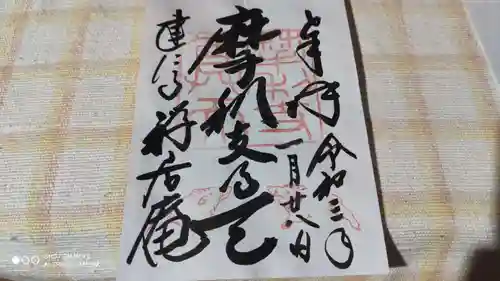 奉拝
令和三年
一月廿八日
摩利支尊天
建仁禅居庵